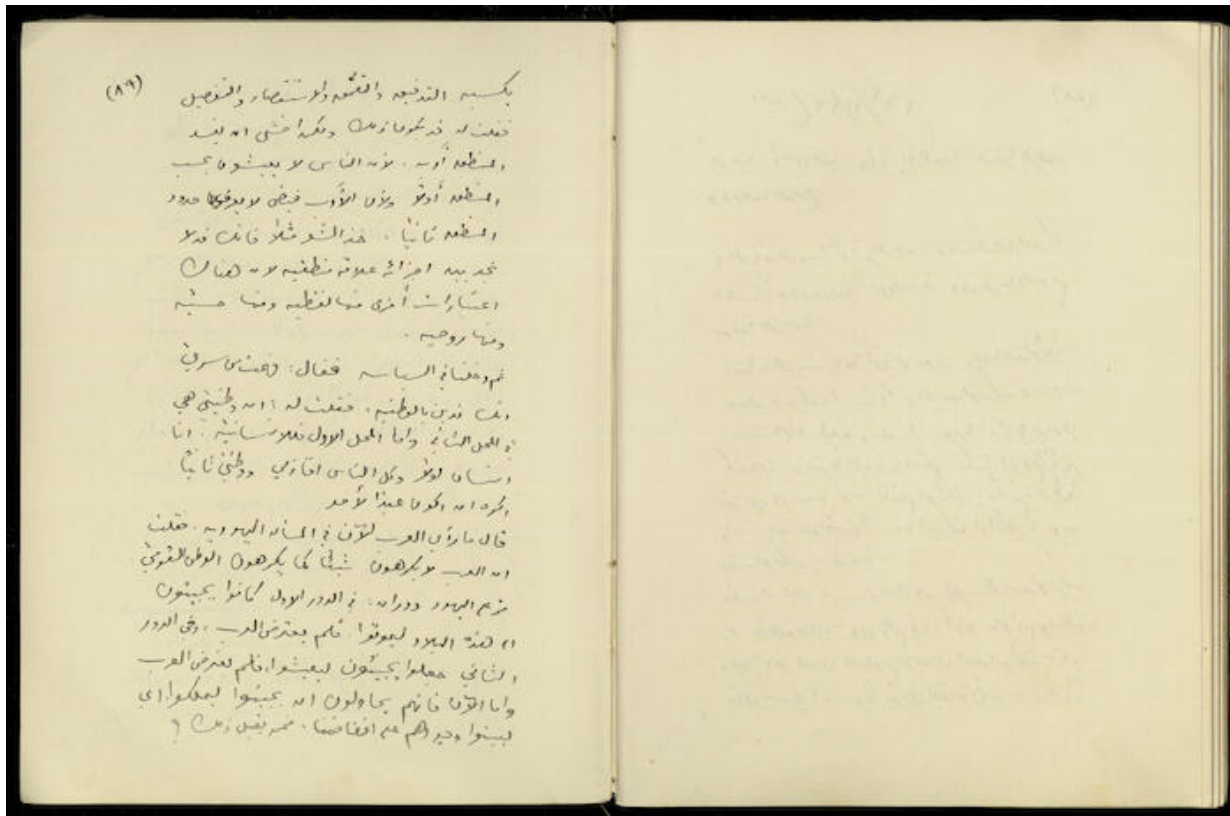 (٨٩)
يكسبه التدقيق والتعمق والاستقصاء والتفصيل
فقلت له قد يكون ذلك ولكن اخشى ان يفسد
المنطق أدبه. لأن الناس لا يعيشون بحسب
المنطق أولاً ولأن الأدب فيض لا يعرف حدود
المنطق ثانياً. خذ الشعر مثلاً فانك قد لا
تجد بين اجزائه علاقة منطقية لان هناك
اعتبارات أخرى منها لفظية ومنها حسية
ومنها روحية.
ثم دخلنا في السياسة فقال: فهمت من سري
انك تدين بالوطنية. فقلت له: ان وطنيتي هي
في المحل الثاني واما المحل الاول فللانسانية. انا
انسان اولاً وكل الناس اخواني ووطني ثانياً
اكره ان اكون عبداً لأحد
قال ما رأي العرب الآن في المسألة اليهودية. فقلت
ان العرب لا يكرهون شيئاً كما يكرهون الوطن القومي
اليهود دوران: في الدور الاول كانوا يجيئون
الى هذه البلاد ليموتوا، فلم يعترض العرب. وفي الدور
الثاني جعلوا يجيئون ليعيشوا، فلم يعترض العرب
واما الآن فانهم يحاولون ان يجيئوا ليملكوا، اي
ليبنوا وجودهم على انقاضنا. فمن يقبل ذلك؟